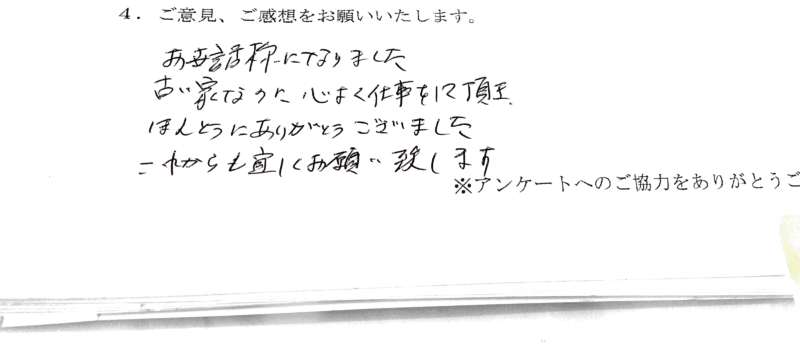 4．ご意見、ご感想をお願いいたします。
お世話様になりました
古い家なのに 心よく仕事をして頂き
ほんとうにありがとうございました
これからも宜しくお願い致します
※アンケートへのご協力をありがとうご